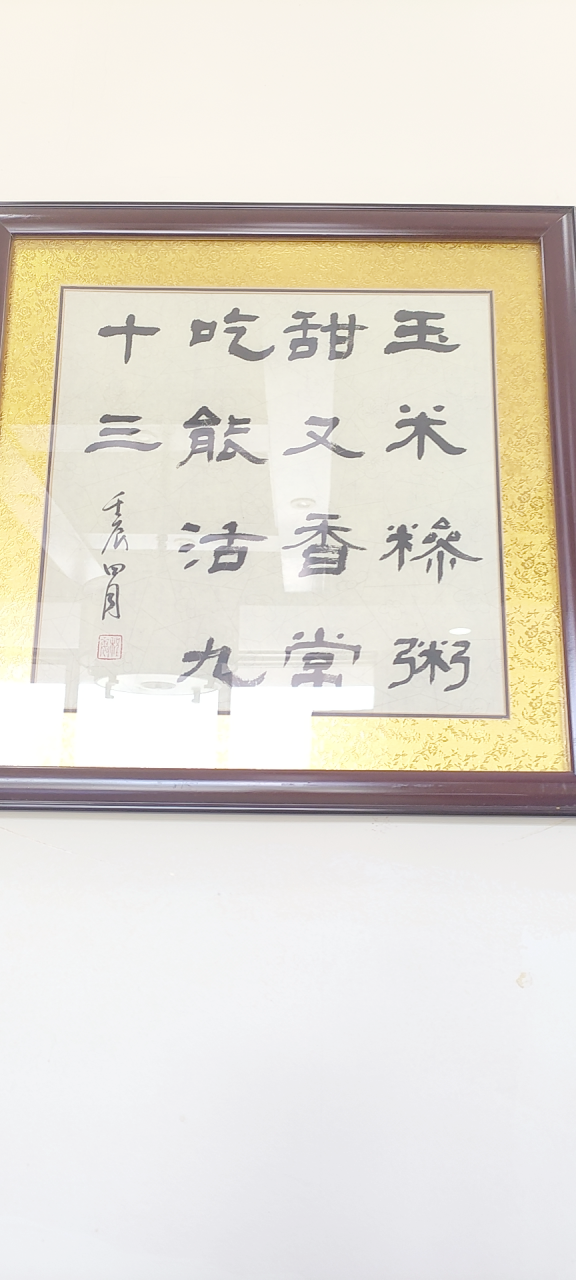 玉米糁粥
甜又香常
吃能活九
十三
壬辰四月